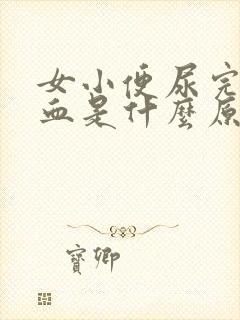 女小便尿完
血是什麼原
寶卿